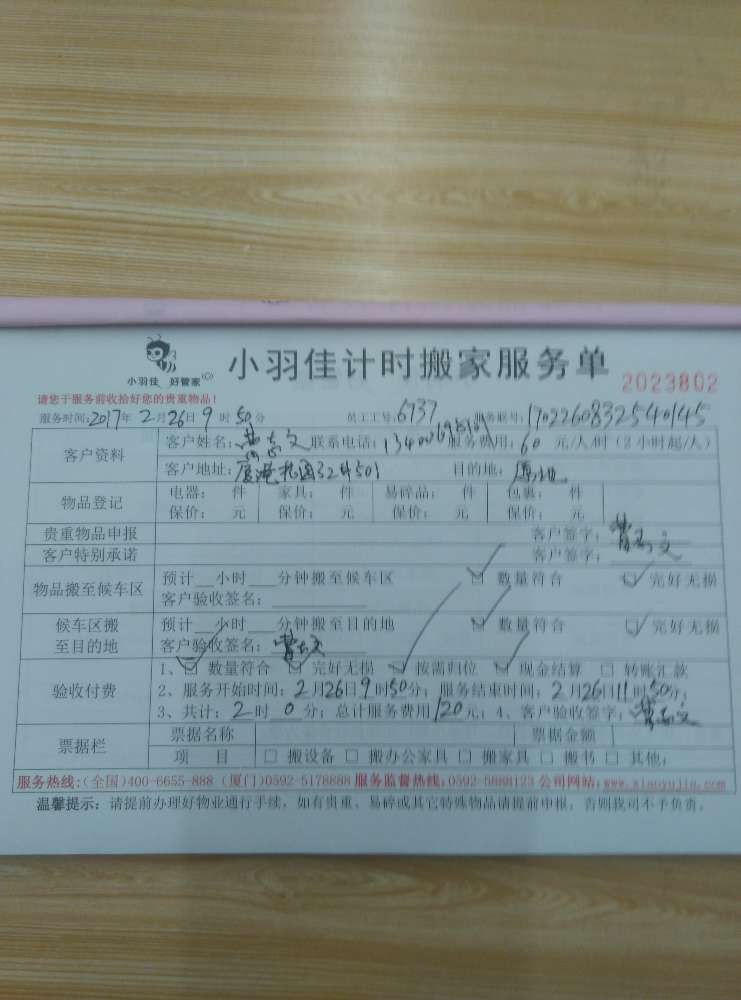 小羽佳 好管家
小羽佳计时搬家服务单
2023802
请您于服务前收拾好您的贵重物品!
服务时间:2017年2月26日9时50分 员工工号:6737 服务联号:170226083254045
客户资料
客户姓名: 联系电话: 服务费用:60元/人/时(2小时起/人)
客户地址: 目的地:
物品登记
电器: 件 家具: 件 易碎品: 件 包裹: 件
保价: 元 保价: 元 保价: 元 保价: 元
贵重物品申报 客户签字:
客户特别承诺 客户签字:
物品搬至候车区
预计__小时___分钟搬至候车区 数量符合 完好无损
客户验收签名:
候车区搬至目的地
预计__小时___分钟搬至目的地 数量符合 完好无损
客户验收签名:
验收付费
1、数量符合 完好无损 按需归位 现金结算 转账汇款
2、服务开始时间:2月26日9时50分;服务结束时间:2月26日11时50分;
3、共计:2时0分;总计服务费用120元;4、客户验收签字:
票据栏
票据名称 票据金额
项 目 搬设备 搬办公家具 搬家具 搬书 其他:
服务热线:(全国)400-6655-888 (厦门)0592-5178888 服务监督热线:0592-5888123 公司网站:www.xiaoyujia.com
温馨提示:请提前办理好物业通行手续,如有贵重、易碎或其它特殊物品请提前申报,否则我司不予负责。